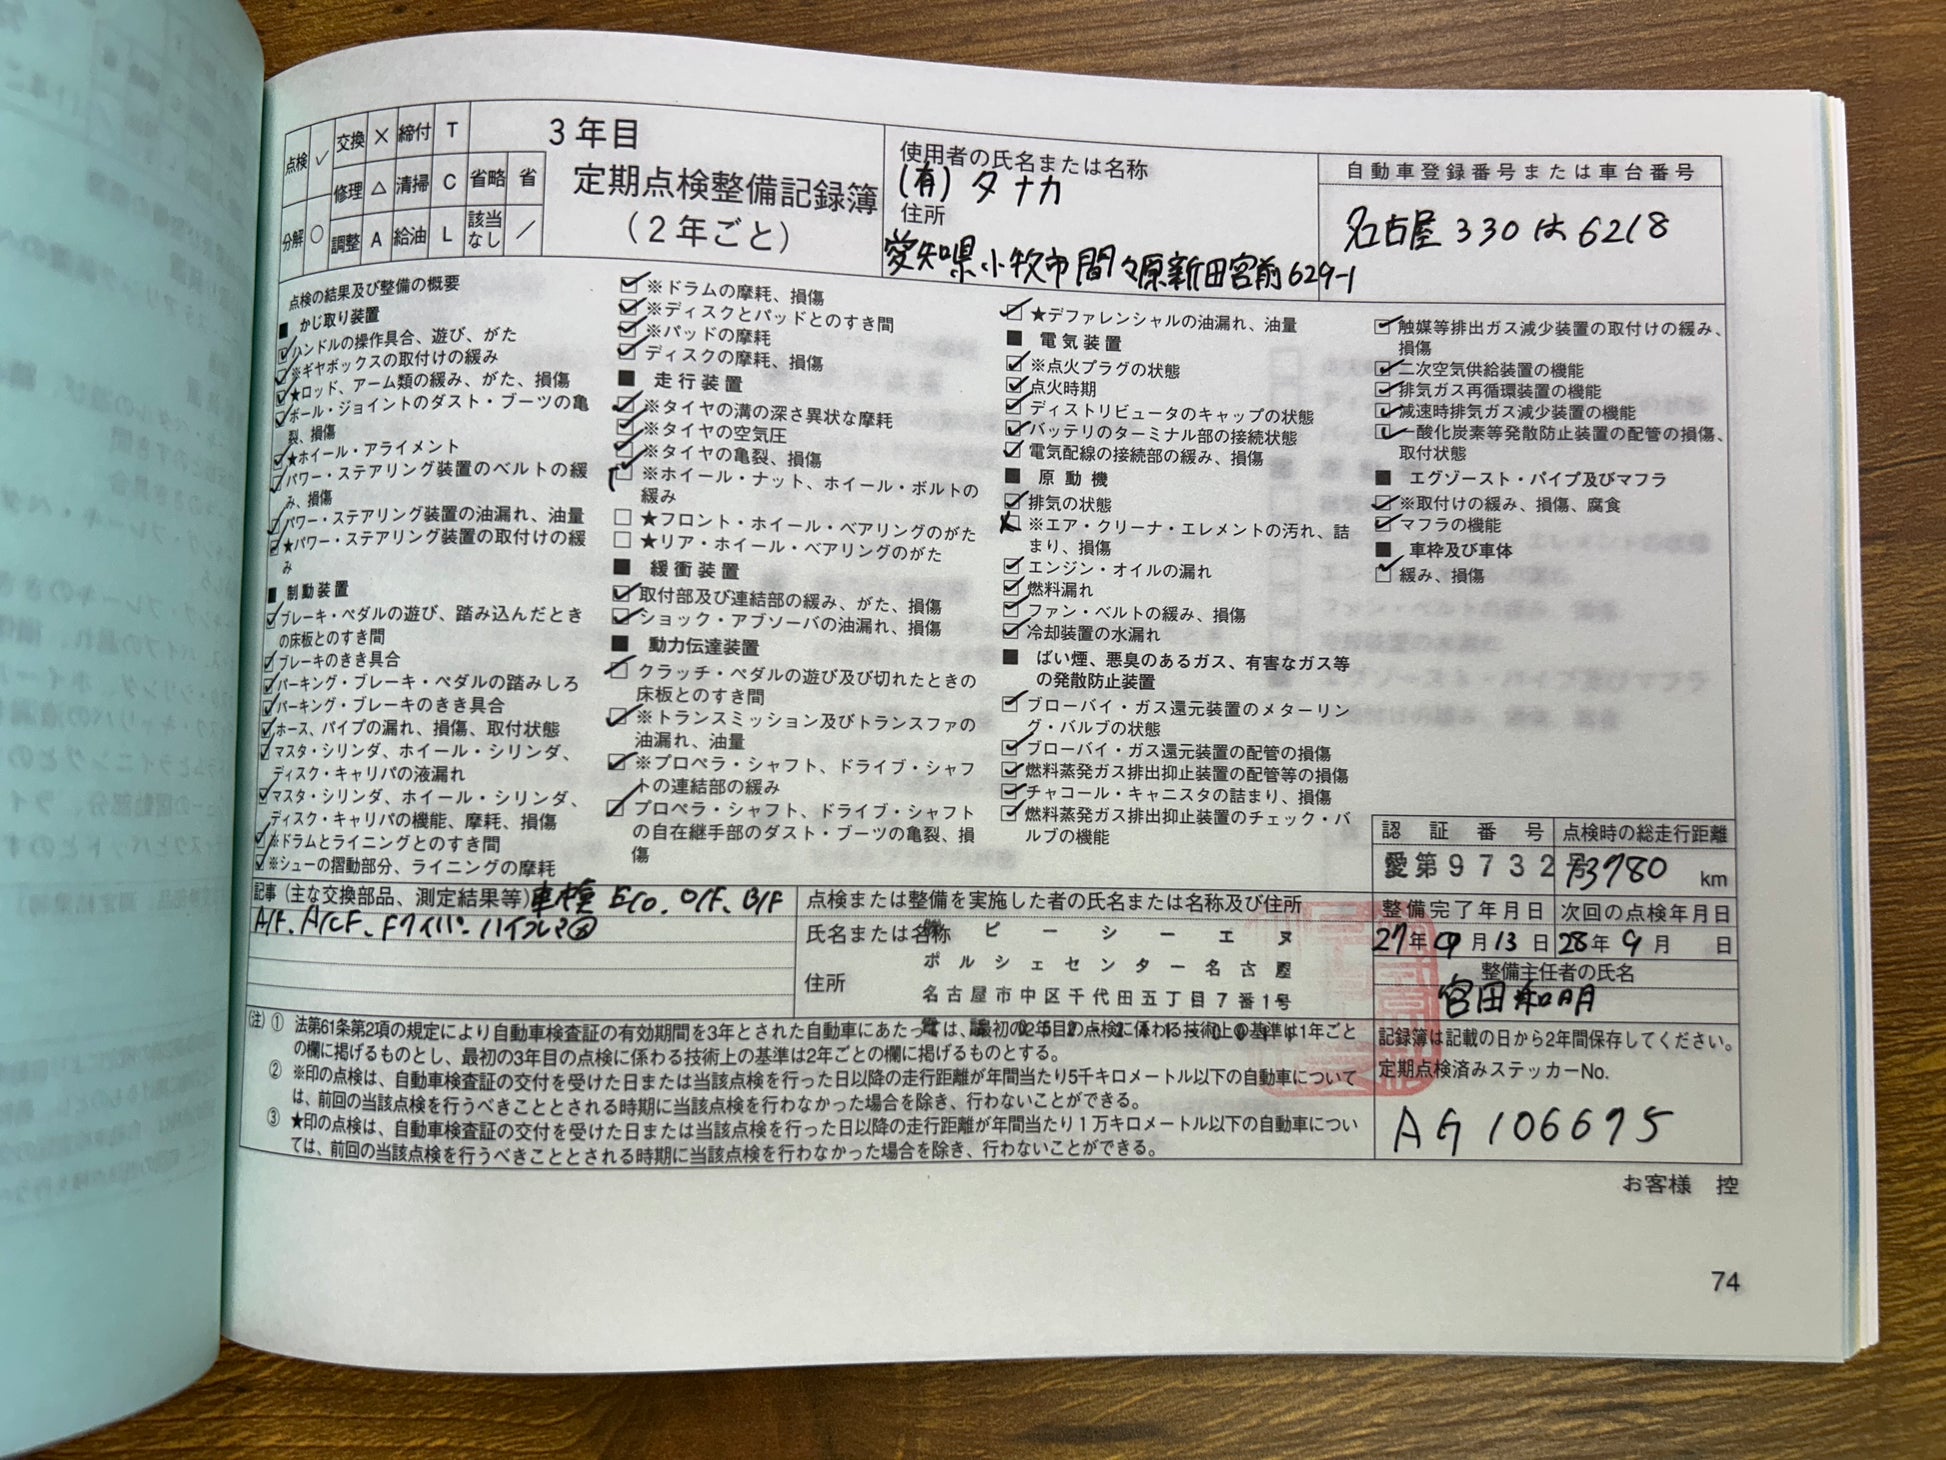 点検 ✓ 交換 × 締付 T
修理 △ 清掃 C 省略 省
分解 ○ 調整 A 給油 L 該当なし ／
3年目
定期点検整備記録簿
(2年ごと)
使用者の氏名または名称
(有)タナカ
住所
愛知県小牧市間々原新田宮前629-1
自動車登録番号または車台番号
名古屋 330 は 6218
点検の結果及び整備の概要
■ かじ取り装置
ハンドルの操作具合、遊び、がた
※ギヤボックスの取付けの緩み
★ロッド、アーム類の緩み、がた、損傷
ボール・ジョイントのダスト・ブーツの亀
裂、損傷
★ホイール・アライメント
パワー・ステアリング装置のベルトの緩
み、損傷
パワー・ステアリング装置の油漏れ、油量
★パワー・ステアリング装置の取付けの緩
み
■ 制動装置
ブレーキ・ペダルの遊び、踏み込んだとき
の床板とのすき間
ブレーキのきき具合
パーキング・ブレーキ・ペダルの踏みしろ
パーキング・ブレーキのきき具合
ホース、パイプの漏れ、損傷、取付状態
マスタ・シリンダ、ホイール・シリンダ、
ディスク・キャリパの液漏れ
マスタ・シリンダ、ホイール・シリンダ、
ディスク・キャリパの機能、摩耗、損傷
※ドラムとライニングとのすき間
※シューの摺動部分、ライニングの摩耗
※ドラムの摩耗、損傷
※ディスクとパッドとのすき間
※パッドの摩耗
ディスクの摩耗、損傷
■ 走行装置
※タイヤの溝の深さ異状な摩耗
※タイヤの空気圧
※タイヤの亀裂、損傷
※ホイール・ナット、ホイール・ボルトの
緩み
★フロント・ホイール・ベアリングのがた
★リア・ホイール・ベアリングのがた
■ 緩衝装置
取付部及び連結部の緩み、がた、損傷
ショック・アブソーバの油漏れ、損傷
■ 動力伝達装置
クラッチ・ペダルの遊び及び切れたときの
床板とのすき間
※トランスミッション及びトランスファの
油漏れ、油量
※プロペラ・シャフト、ドライブ・シャフ
トの連結部の緩み
プロペラ・シャフト、ドライブ・シャフト
の自在継手部のダスト・ブーツの亀裂、損
傷
★デファレンシャルの油漏れ、油量
■ 電気装置
※点火プラグの状態
点火時期
ディストリビュータのキャップの状態
バッテリのターミナル部の接続状態
電気配線の接続部の緩み、損傷
■ 原動機
排気の状態
※エア・クリーナ・エレメントの汚れ、詰
まり、損傷
エンジン・オイルの漏れ
燃料漏れ
ファン・ベルトの緩み、損傷
冷却装置の水漏れ
■ ばい煙、悪臭のあるガス、有害なガス等
の発散防止装置
ブローバイ・ガス還元装置のメターリン
グ・バルブの状態
ブローバイ・ガス還元装置の配管の損傷
燃料蒸発ガス排出抑止装置の配管等の損傷
チャコール・キャニスタの詰まり、損傷
燃料蒸発ガス排出抑止装置のチェック・バ
ルブの機能
触媒等排出ガス減少装置の取付けの緩み、
損傷
二次空気供給装置の機能
排気ガス再循環装置の機能
減速時排気ガス減少装置の機能
一酸化炭素等発散防止装置の配管の損傷、
取付状態
■ エグゾースト・パイプ及びマフラ
※取付けの緩み、損傷、腐食
マフラの機能
■ 車枠及び車体
緩み、損傷
認証番号 点検時の総走行距離
愛第9732号 3780 km
整備完了年月日 次回の点検年月日
27年 09月 13日 28年 9月 日
整備主任者の氏名
宮田和明
記事(主な交換部品、測定結果等) 車検 E/O、O/F、B/F
A/F、A/CF、Fワイパー
点検または整備を実施した者の氏名または名称及び住所
氏名または名称 ㈱ピーシーエヌ
ポルシェセンター名古屋
住所 名古屋市中区千代田五丁目7番1号
(注) ① 法第61条第2項の規定により自動車検査証の有効期間を3年とされた自動車にあたっては、最初の2年目の点検に係わる技術上の基準は1年ごと
の欄に掲げるものとし、最初の3年目の点検に係わる技術上の基準は2年ごとの欄に掲げるものとする。
② ※印の点検は、自動車検査証の交付を受けた日または当該点検を行った日以降の走行距離が年間当たり5千キロメートル以下の自動車について
は、前回の当該点検を行うべきこととされる時期に当該点検を行わなかった場合を除き、行わないことができる。
③ ★印の点検は、自動車検査証の交付を受けた日または当該点検を行った日以降の走行距離が年間当たり1万キロメートル以下の自動車につい
ては、前回の当該点検を行うべきこととされる時期に当該点検を行わなかった場合を除き、行わないことができる。
記録簿は記載の日から2年間保存してください。
定期点検済みステッカーNo.
AG106675
お客様 控
74